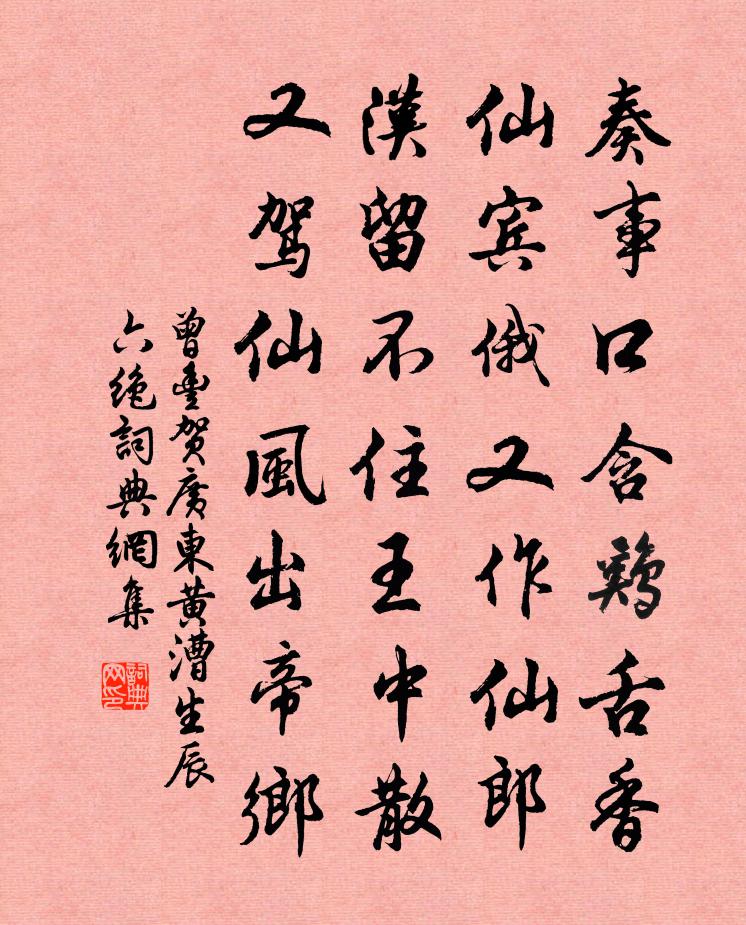 奏事口含鷄舌香
仙賓俄又作仙郎
漢留不住王中散
又駕仙風出帝鄉
曾豐賀廣東黃漕生辰
六絶詞典網集
詞典
网印